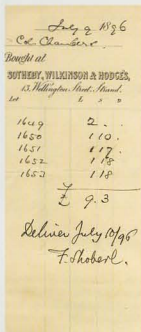 July 9 1896
Col Chambers.
Bought at
SOTHEBY, WILKINSON & HODGE'S,
13, Wellington Street, Strand.
Lot £ S D
1649 2 . .
1650 1 10 .
1651 1 17 .
1652 1 18
1653 1 18
£ 9.3
Deliver July 10/96
F. Shoberl.